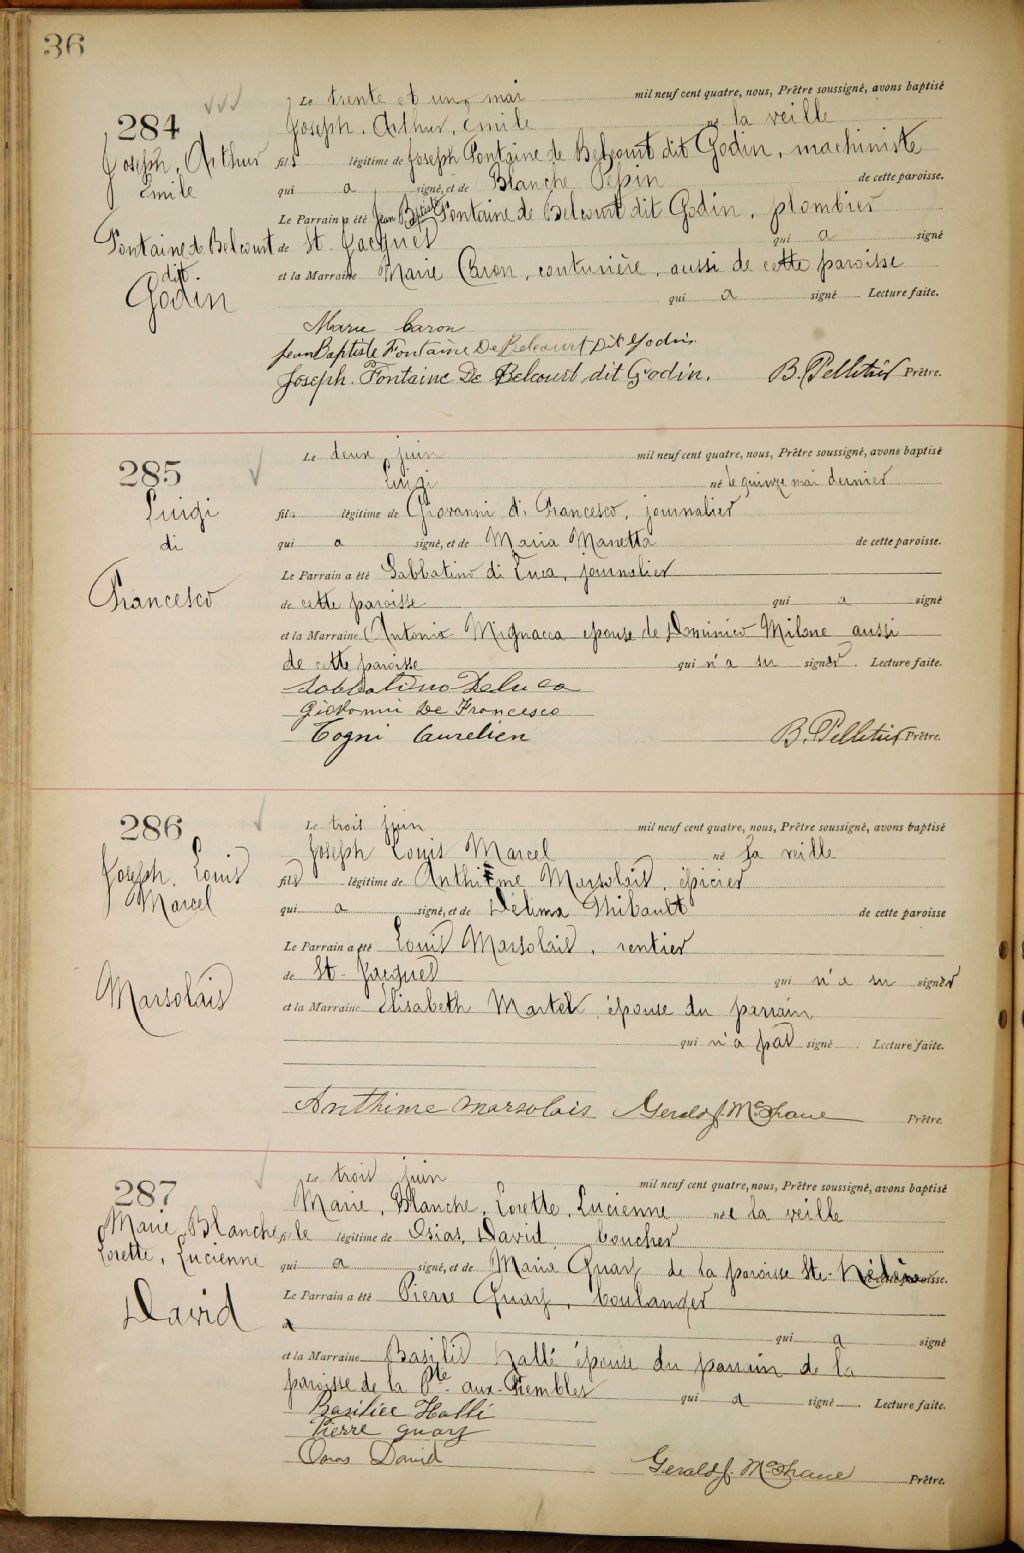 36
284
Joseph, Arthur
Emile
Fontaine de Belcourt
dit
Godin
Le trente et un, mai mil neuf cent quatre, nous, Prêtre soussigné, avons baptisé
Joseph, Arthur, Emile né la veille
fils légitime de Joseph Fontaine de Belcourt dit Godin, machiniste
qui a signé, et de Blanche Pepin de cette paroisse.
Le Parrain a été Jean Baptiste Fontaine de Belcourt dit Godin, plombier
de St. Jacques qui a signé
et la Marraine Marie Caron, couturière, aussi de cette paroisse
qui a signé Lecture faite.
Marie Caron
Jean Baptiste Fontaine De Belcourt Dit Godin
Joseph Fontaine De Belcourt dit Godin. B. Pelletier Prêtre.
285
Luigi
di
Francesco
Le deux juin mil neuf cent quatre, nous, Prêtre soussigné, avons baptisé
Luigi né le quinze mai dernier
fils légitime de Giovanni di Francesco, journalier
qui a signé, et de Maria Manetta de cette paroisse.
Le Parrain a été Sabbatino di Luca, journalier
de cette paroisse qui a signé
et la Marraine Antonia Mignacca épouse de Dominico Milone aussi
de cette paroisse qui n'a su signer. Lecture faite.
Sabbatino Deluca
Giovanni De Francesco
Togni Aurelien B. Pelletier Prêtre.
286
Joseph, Louis
Marcel
Marsolais
Le trois juin mil neuf cent quatre, nous, Prêtre soussigné, avons baptisé
Joseph Louis Marcel né la veille
fils légitime de Anthime Marsolais, épicier
qui a signé, et de Délima Thibault de cette paroisse
Le Parrain a été Louis Marsolais, rentier
de St-Jacques qui n'a su signer
et la Marraine Elisabeth Martel, épouse du parrain
qui n'a pas signé Lecture faite.
Anthime Marsolais Gerald J. McShane Prêtre.
287
Marie, Blanche
Lorette, Lucienne
David
Le trois juin mil neuf cent quatre, nous, Prêtre soussigné, avons baptisé
Marie, Blanche, Lorette, Lucienne née la veille
fille légitime de Osias, David, boucher
qui a signé, et de Maria Quary de la paroisse Ste-Hélène
Le Parrain a été Pierre Quary, boulanger
a qui a signé
et la Marraine Basilis Hallé épouse du parrain de la
paroisse de la Pte. aux-Trembles qui a signé Lecture faite.
Basilice Hallé
Pierre Quary
Osias David Gerald J. McShane Prêtre.